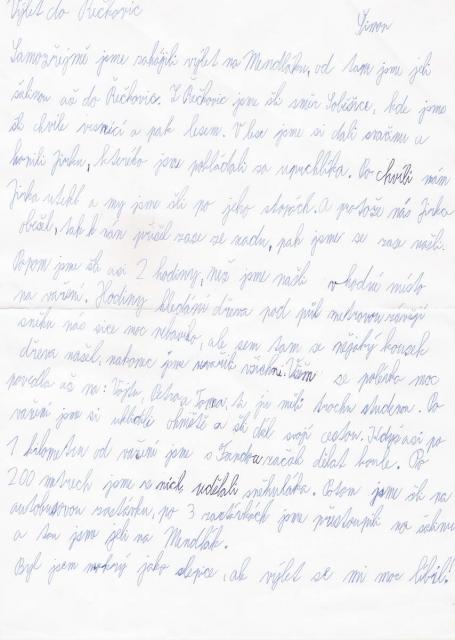 Výlet do Řečkovic
Šimon
Samozřejmě jsme zahájili výlet na Mendláku, od tam jsme jeli
šalinou až do Řečkovic. Z Řečkovic jsme šli směr Soběšice, kde jsme
šli chvíli vesnicí a pak lesem. V lese jsme si dali svačinu a
honili Jirku, kterého jsme pokládali za uprchlíka. Po chvíli nám
Jirka utekl a my jsme šli po jeho stopách. A protože nás Jirka
obešel, tak k nám přišel zase ze zadu, pak jsme se zase našli.
Potom jsme šli asi 2 hodiny, než jsme našli vhodné místo
na vaření. Hodiny hledání dřeva pod půl metrovou
sněhu nás sice moc nebavilo, ale sem tam se nějaký kousek
dřeva našel, nakonec jsme uvařili všichni. Všem se polévka moc
povedla až na: Vojtu, Petra a Toma, ti ji měli trochu studenou. Po
vaření jsme si uklidili ohniště a šli dál svojí cestou. Když asi po
1 kilometru od vaření jsme s začali dělat koule. Po
200 metrech jsme z nich udělali sněhuláka. Potom jsme šli na
autobusovou zastávku, po 3 zastávkách jsme přestoupili na šalinu
a tou jsme jeli na Mendlák.
Byl jsem mokrý jako slepice, ale výlet se mi moc líbil!